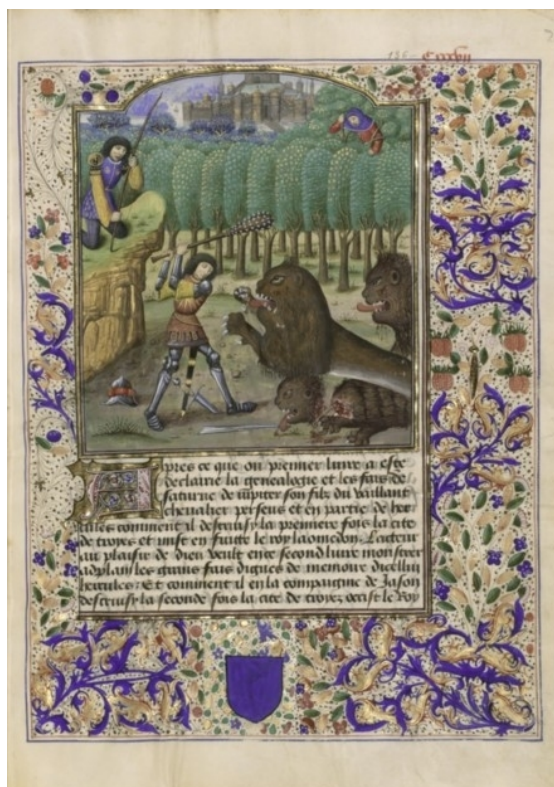 Cxxxvii
Apres ce que ou premier livre a este
declaire la genealogie et les fais de
saturne de iupiter son filz du vaillant
chevalier perseus et en partie de her
cules comment il destruisy la premiere fois la cite
de troyes et mist en fuitte le roy laomedon. Lacteur
au plaisir de dieu veult en ce second livre monstrer
adplain les grans fais dignes de memoire dicellui
hercules. Et comment il en la compaignie de Jason
destruisy la seconde fois la cite de troyez occist le Roy